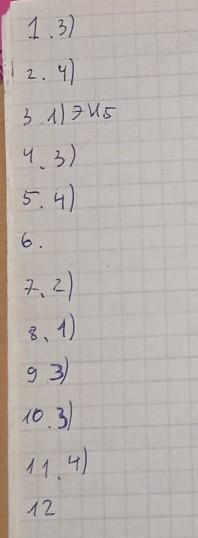 1.3)
2.4)
3.1) ЭК5
4.3)
5.4)
6.
7.2)
8.1)
9 3)
10.3)
11.4)
12